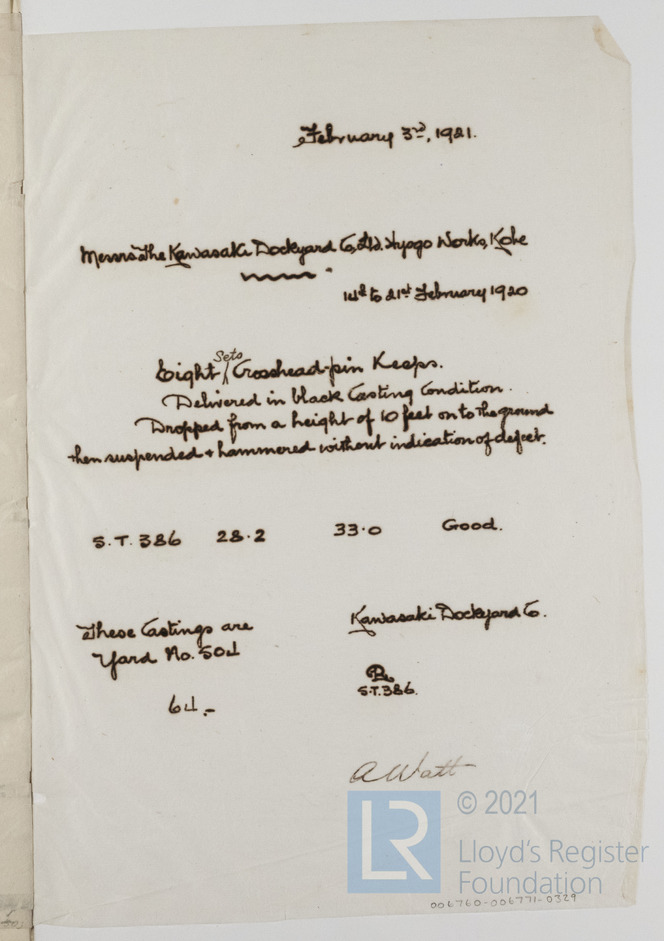 February 3rd, 1921.
Messrs The Kawasaki Dockyard Co, Ltd. Hyogo Works, Kobe
14th to 21st February 1920
Eight Sets Crosshead-pin Keeps.
Delivered in black Casting Condition.
Dropped from a height of 10 feet on to the ground
then suspended + hammered without indication of defect.
S.T. 386 28.2 33.0 Good.
These Castings are
Yard No. 504
64.-
Kawasaki Dockyard Co.
LR
S.T. 386.
A Watt
LR
© 2021
Lloyd's Register
Foundation
006760-006771-0329